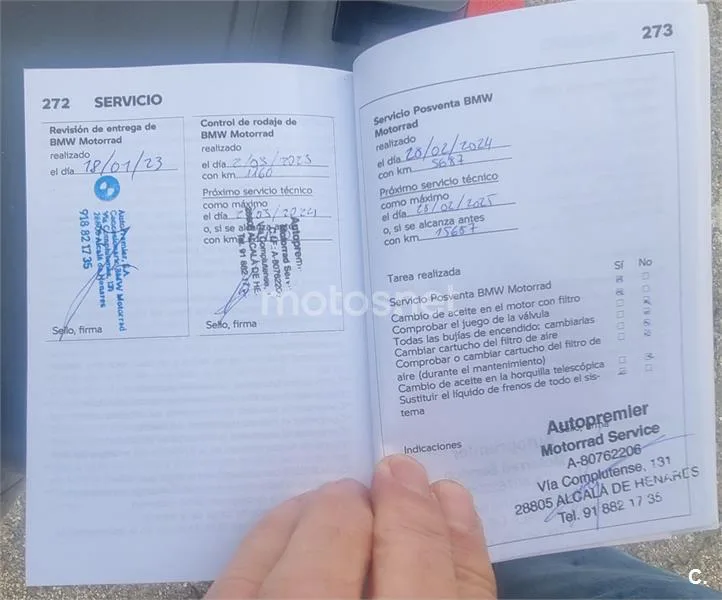 272 SERVICIO
Revisión de entrega de
BMW Motorrad
realizado
el día 18/01/23
Autopremier, S.A.
Concesionario BMW Motorrad
Vía Complutense, 131
28805 Alcalá de Henares
918 82 17 35
Sello, firma
Control de rodaje de
BMW Motorrad
realizado
el día 2/03/2023
con km 1160
Próximo servicio técnico
como máximo
el día /03/2024
o, si se alcanza antes
con km
Autopremier
Motorrad Service
C.I.F.: A-80762206
Vía Complutense,
28805 ALCALÁ DE HE
Tel. 91 882 17
Sello, firma
273
Servicio Posventa BMW
Motorrad
realizado
el día 28/02/2024
con km 5687
Próximo servicio técnico
como máximo
el día 28/02/2025
o, si se alcanza antes
con km 15687
Tarea realizada
Sí No
Servicio Posventa BMW Motorrad
Cambio de aceite en el motor con filtro
Comprobar el juego de la válvula
Todas las bujías de encendido: cambiarlas
Cambiar cartucho del filtro de aire
Comprobar o cambiar cartucho del filtro de
aire (durante el mantenimiento)
Cambio de aceite en la horquilla telescópica
Sustituir el líquido de frenos de todo el sis-
tema
Indicaciones
Sello, firma
Autopremier
Motorrad Service
A-80762206
Vía Complutense, 131
28805 ALCALÁ DE HENARES
Tel. 91 882 17 35
motos.net
C.